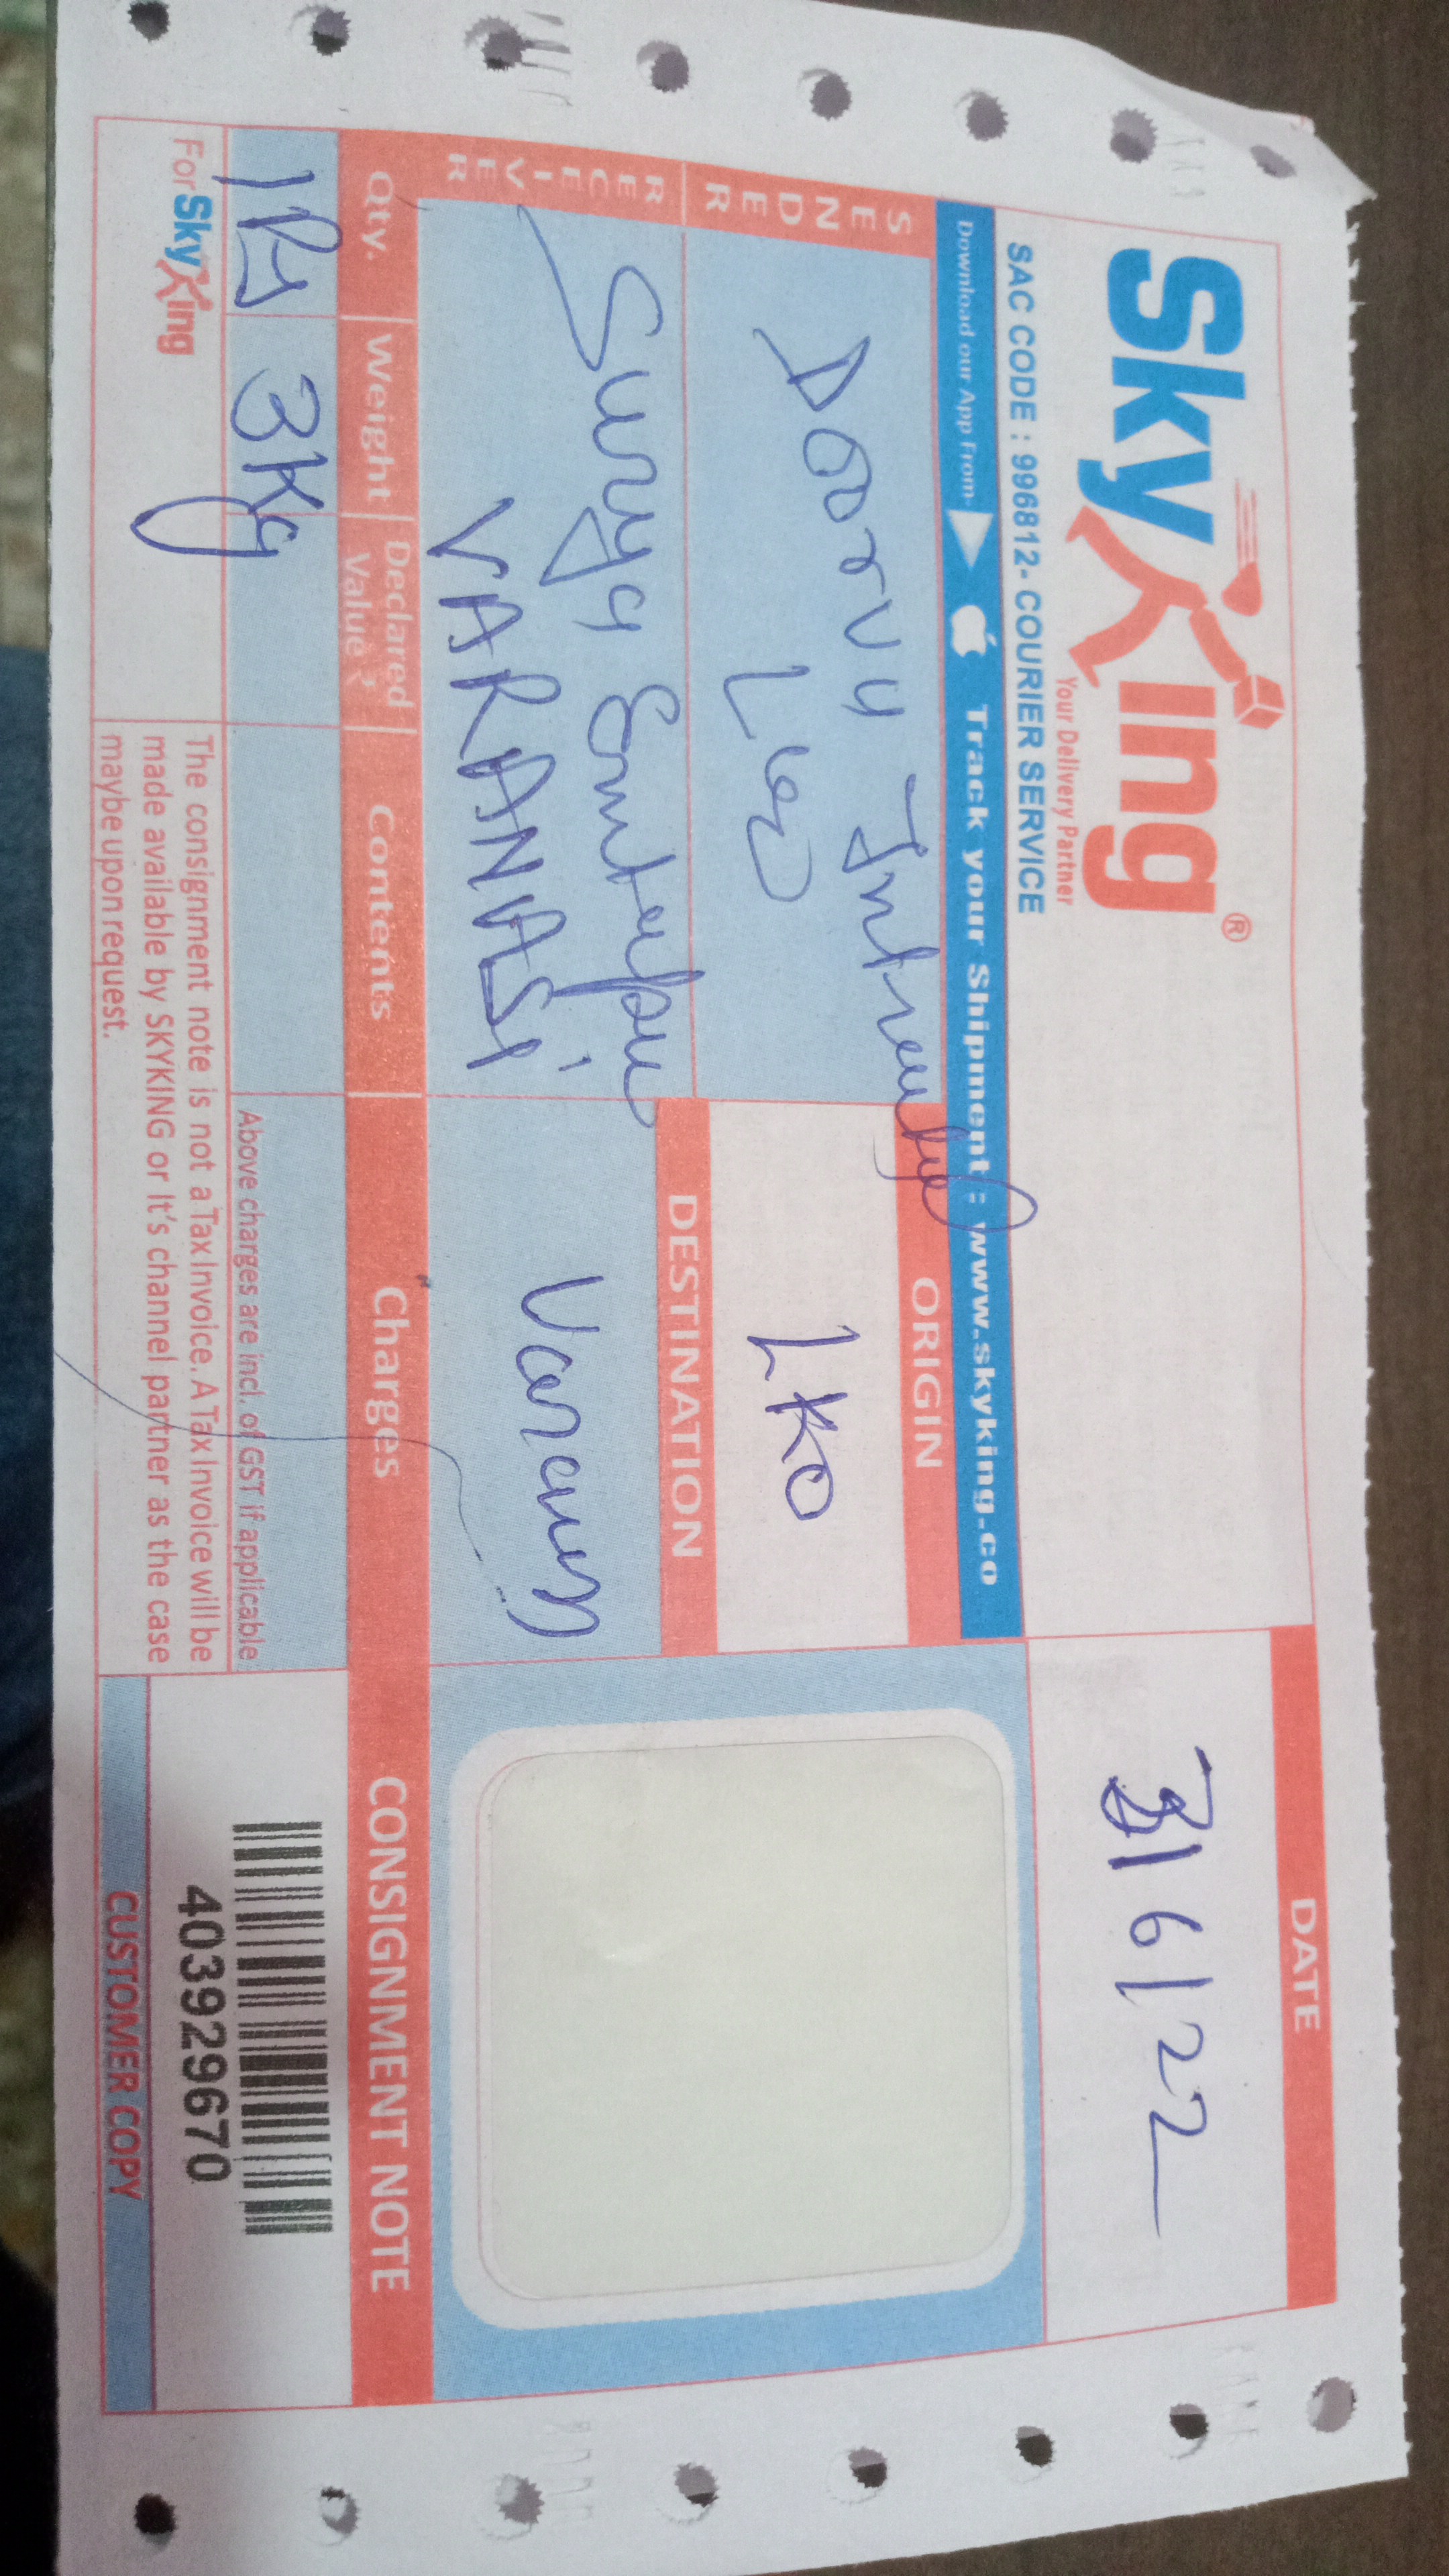 SkyKing®
Your Delivery Partner
SAC CODE : 996812- COURIER SERVICE
DATE
3/6/22
Download our App From- Track your Shipment : www.skyking.co
SENDER
Doorvu
ORIGIN
LKO
RECEIVER
Surya
VARANASI
DESTINATION
Qty. Weight Declared Value ₹ Contents Charges CONSIGNMENT NOTE
3Kg
Above charges are incl. of GST if applicable
403929670
For SkyKing
The consignment note is not a Tax Invoice. A Tax Invoice will be
made available by SKYKING or It's channel partner as the case
maybe upon request.
CUSTOMER COPY